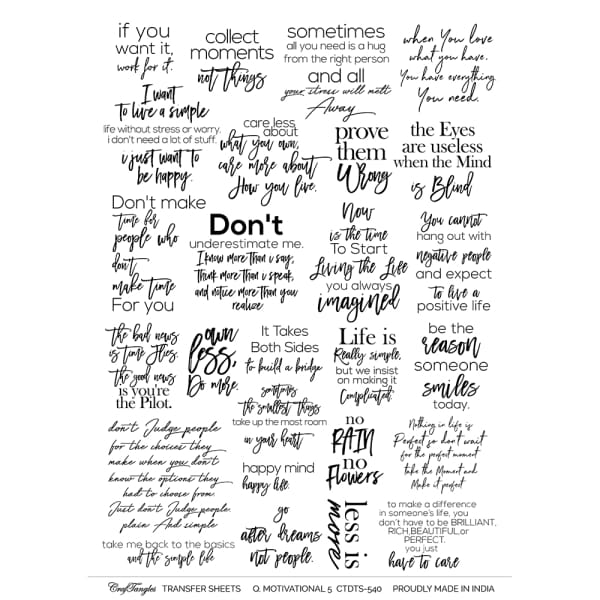 if you
want it,
work for it.
collect
moments
not things
sometimes
all you need is a hug
from the right person
and all
your stress will melt
Away
when You love
what you have.
You have everything
You need.
I want
to live a simple
life without stress or worry.
i don't need a lot of stuff.
i just want to
be happy.
care less
about
what you own,
care more about
How you live.
prove
them
Wrong
the Eyes
are useless
when the Mind
is Blind
Don't make
time for
people who
don't
make time
For you
Don't
underestimate me.
I know more than i say,
Think more than i speak,
and notice more than You
realize
Now
is the time
To Start
Living the Life
you always
imagined
You cannot
hang out with
negative people
and expect
to live a
positive life
the bad news
is time flies.
the good news
is you're
the Pilot.
own
less,
Do more.
It Takes
Both Sides
to build a bridge
Life is
Really simple,
but we insist
on making it
Complicated.
be the
reason
someone
smiles
today.
sometimes
the smallest things
take up the most room
in your heart
happy mind
happy life.
no
RAIN
no
Flowers
Nothing in life is
Perfect so don't wait
for the perfect moment
take the Moment and
Make it perfect
don't Judge people
for the choices they
make when you don't
know the options they
had to choose from.
Just don't Judge people.
plain And simple
go
after dreams
not people.
less is
more
to make a difference
in someone's life, you
don't have to be BRILLIANT,
RICH,BEAUTIFUL,or
PERFECT.
you just
have to care
take me back to the basics
and the simple life
CrafTangles TRANSFER SHEETS Q. MOTIVATIONAL 5 CTDTS-540 PROUDLY MADE IN INDIA